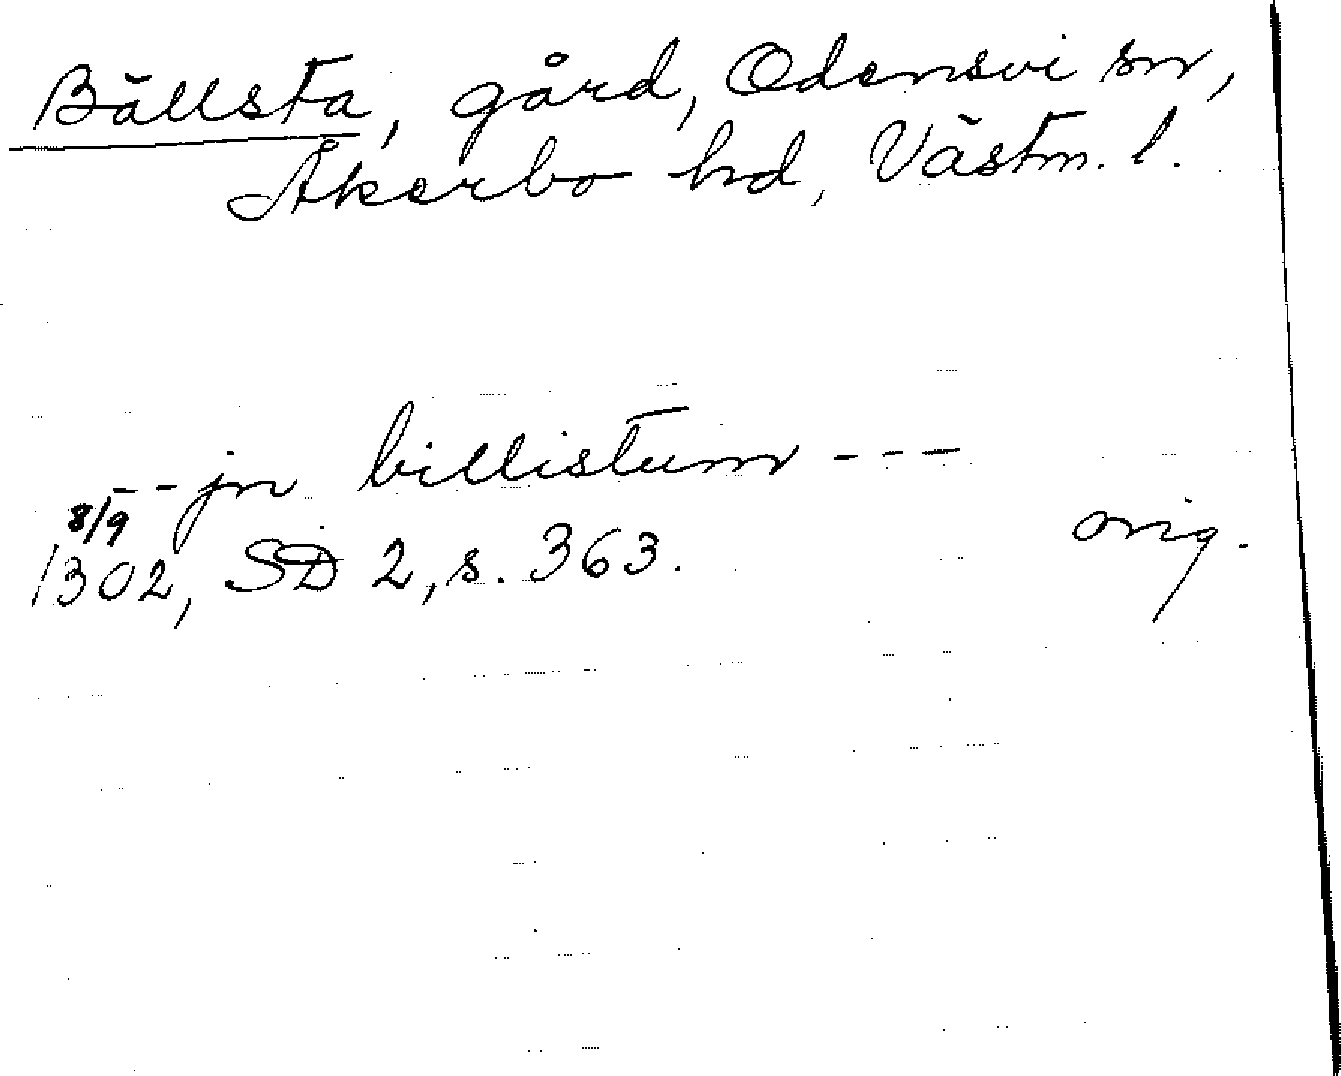 Bällsta, gård, Odensvi sn,
Åkerbo hd, Västm. l.
--- jn billistum ---
8/9
1302, SD 2, s. 363. orig.